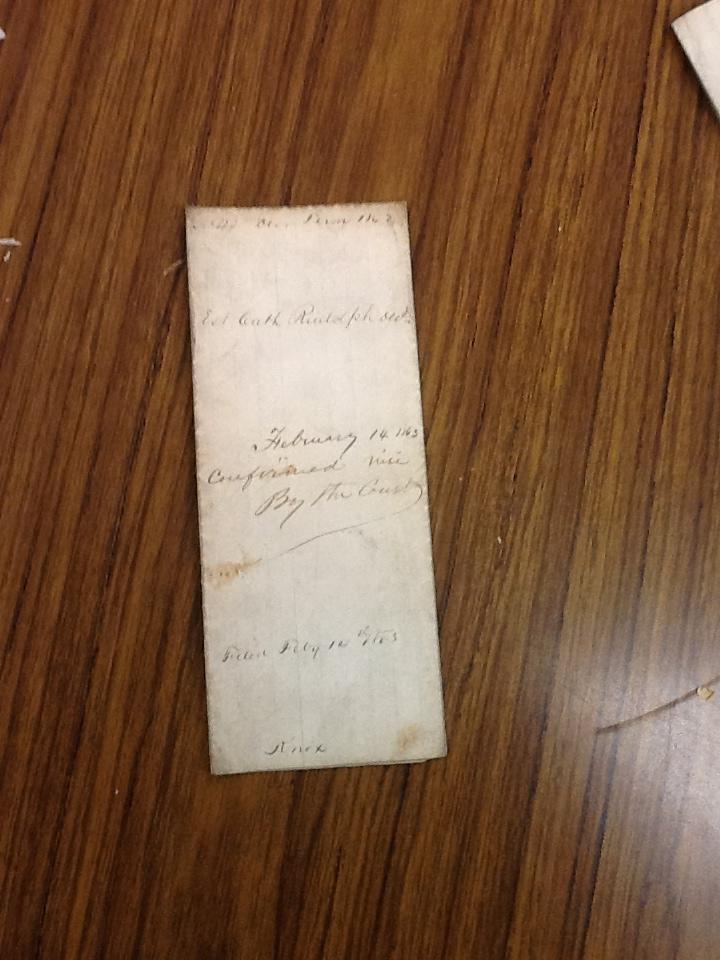 Term 186
Est Cath Rudolph decd
February 14 1863
Confirmed nisi
By the Court
Filed Feby 14th 1863
Knox